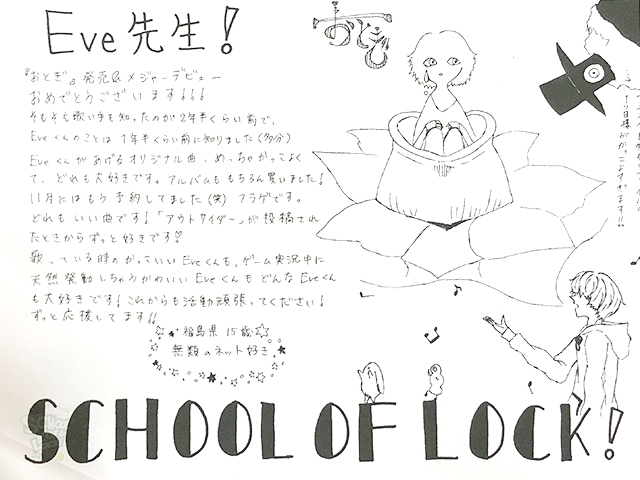 Eve先生!
『おとぎ』発売&メジャーデビュー
おめでとうございます!!!
そもそも歌い手を知ったのが2年半くらい前で、
Eveくんのことは1年半くらい前に知りました(多分)
Eveくんがあげるオリジナル曲、めっちゃかっこよく
て、どれも大好きです。アルバムももちろん買いました!
11月にはもう予約してました(笑) フラゲです。
どれもいい曲です!「アウトサイダー」が投稿され
たときからずっと好きです♡
歌っている時のかっこいいEveくんも、ゲーム実況中に
天然発動しちゃうかわいいEveくんもどんなEveくん
も大好きです!これからも活動頑張ってください!
ずっと応援してます!!
福島県 15歳
無類のネット好き
おとぎ
SCHOOL OF LOCK!